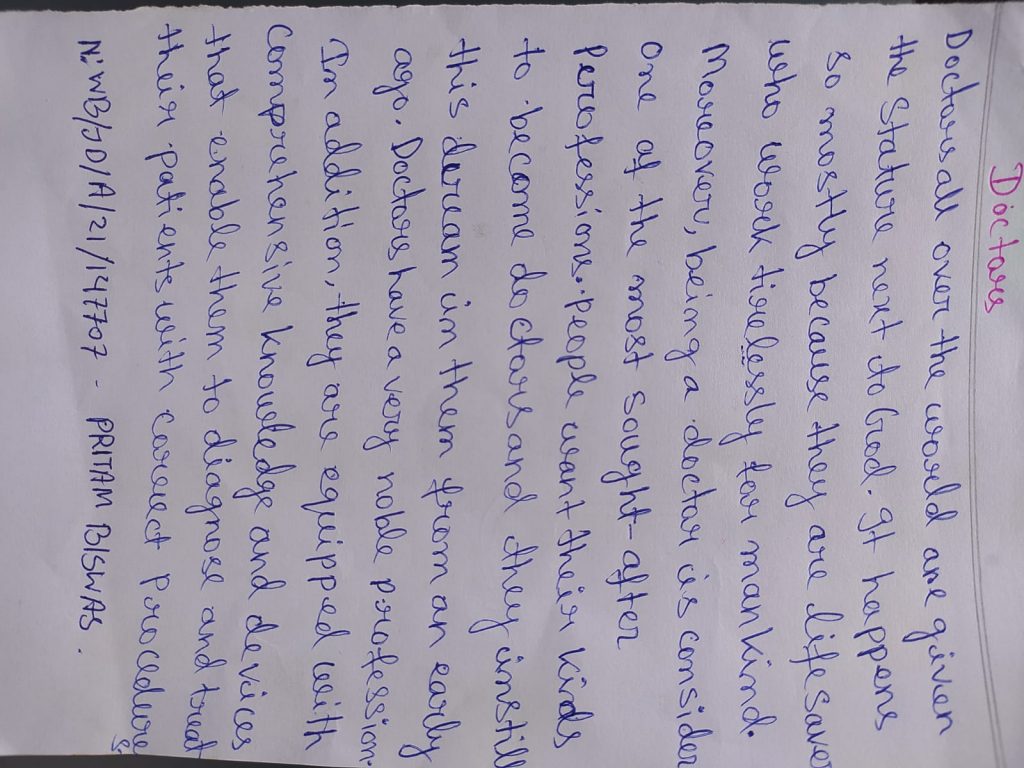 Doctors
Doctors all over the world are given
the stature next to God. It happens
so mostly because they are lifesaver
who work tirelessly for mankind.
Moreover, being a doctor is consider
one of the most sought-after
Professions. People want their kids
to become doctors and they instill
this dream in them from an early
ago. Doctors have a very noble profession.
In addition, they are equipped with
Comprehensive knowledge and devices
that enable them to diagnose and treat
their patients with correct procedures
N:WB/JD/A/21/147707 - PRITAM BISWAS.